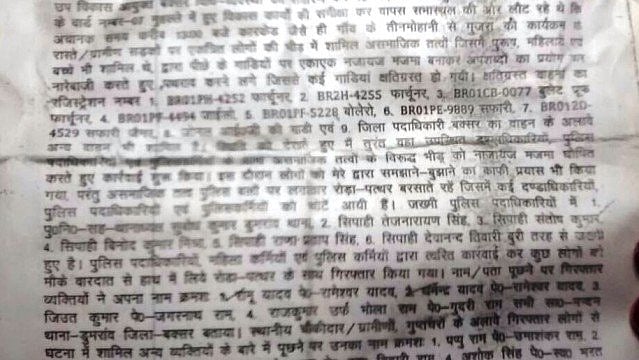 उप विकास आयुक्त बक्सर
के वार्ड नम्बर-07 मुहल्ले में हुए विकास कार्यों की समीक्षा कर वापस सभास्थल की ओर लौट रहे थे कि
अचानक समय करीब 13:00 बजे कारकेड जैसे ही गाँव के तीनमोहानी से गुजरा की कार्यक्रम के
रास्ते/ग्रामीण सड़कों पर एकत्रित लोगों की भीड़ में शामिल असमाजिक तत्वों जिसमें पुरूष, महिलाएं एवं
बच्चे भी शामिल थे, द्वारा पीछे के गाड़ियों पर एकाएक नजायज मजमा बनाकर अपशब्दों का प्रयोग कर
नारेबाजी करते हुए पथराव करने लगे जिससे कई गाडियां क्षतिग्रस्त हो गया। क्षतिग्रस्त वाहनों का
रजिस्ट्रेशन नम्बर 1. BR01PH-4252 फार्चूनर, 2. BR2H-4255 फार्चूनर, 3. BR01CB-0077 बुलेट प्रूफ
फार्चूनर, 4. BR01PF-4494 जाईलो, 5. BR01PF-5228 बोलेरो, 6. BR01PE-9889 सफारी, 7.
4529 सफारी 8. की गाडी एवं 9. जिला पदाधिकारी बक्सर का वाहन के अलावे
अन्य वाहन भी शामिल है। हुए में तुरंत वहां उपस्थित दण्डाधिकारियों, पुलिस
असमाजिक तत्वों के विरूद्ध भीड़ को नाजायज मजमा घोषित
करते हुए कार्रवाई शुरू किया। इस दौरान लोगों को मेरे द्वारा समझाने-बुझाने का काफी प्रयास भी किया
गया, परंतु असमाजिक तत्व पुलिस बलों पर लगातार रोड़ा-पत्थर बरसाते रहें जिसमें कई दण्डाधिकारियों,
पुलिस पदाधिकारियों एवं पुलिसकर्मियों को चोटें आयी है। जख्मी पुलिस पदाधिकारियों में 1.
पु0नि0-सह-थानाध्यक्ष सुबोध कुमार डुमरांव थाना, 2. सिपाही तेजनारायण सिंह, 3. सिपाही संतोष कुमार
4. सिपाही बिनोद कुमार मिश्रा, 5. सिपाही राणा प्रताप सिंह, 6. सिपाही देवानन्द तिवारी बुरी तरह से जख्मी
हुए है। पुलिस पदाधिकारियों, महिला कर्मियों एवं पुलिस कर्मियों द्वारा त्वरित कार्रवाई कर कुछ लोगों को
मौके वारदात से हाथ में लिये रोडा-पत्थर के साथ गिरफ्तार किया गया। नाम/पता पूछने पर गिरफ्तार
व्यक्तियों ने अपना नाम क्रमशः 1. रामू यादव पे0-रामेश्वर यादव, 2. धर्मेन्द्र यादव पे0-रामेश्वर यादव, 3.
जिउत कुमार पे0-जगरनाथ राम, 4. राजकुमार उर्फ भोला राम पे0-गुदरी राम सभी सा0-नन्दन
थाना-डुमरांव जिला-बक्सर बताया। स्थानीय चौकीदार/ग्रामीणों, गुप्तचरों के अलावे गिरफ्तार लोगों से
घटना में शामिल अन्य व्यक्तियों के बारे में पूछने पर उनका नाम क्रमशः 1. पप्पु राम पे0-उमाशंकर राम, 2.
तिवारी राम, 4. अशोक सिंह पे0-भरत